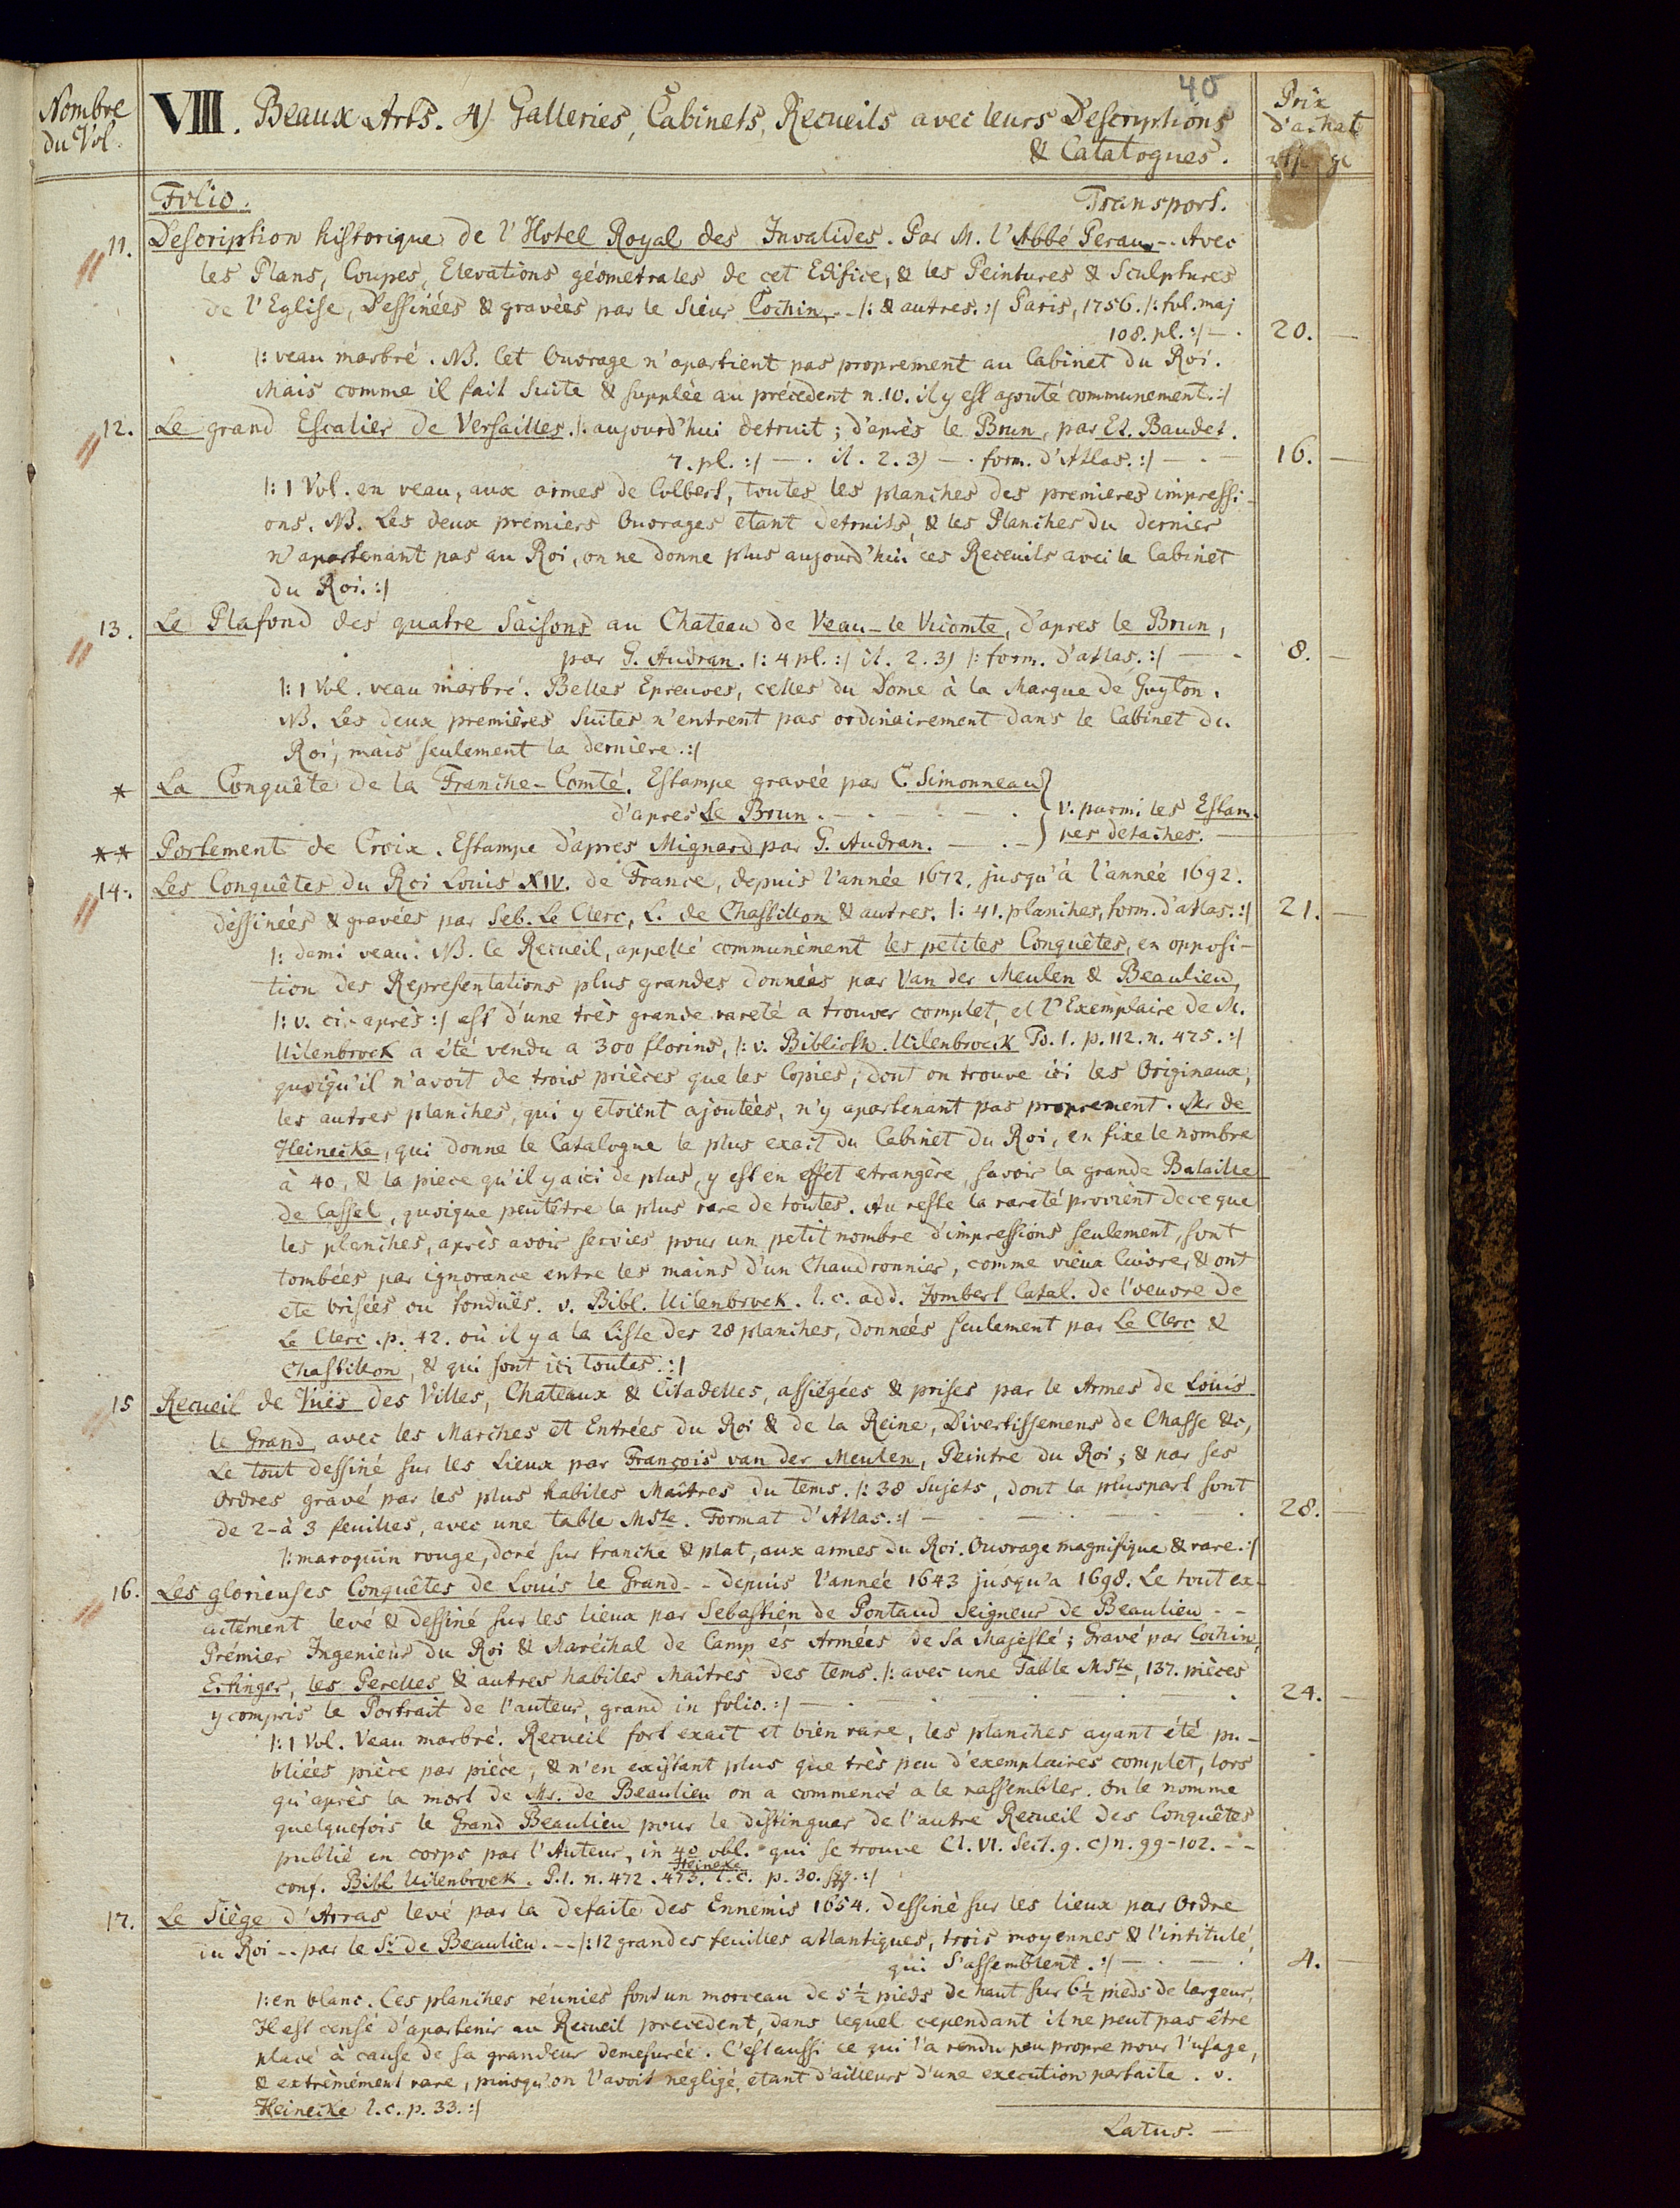 40
Nombre du Vol.
VIII. Beaux Arts. 4) Galleries, Cabinets, Recueils avec leurs Descriptions
& Catatogues.
Prix d'achat
Folio. Transport.
11. Description historique de l'Hotel Royal des Invalides. Par M. l'Abbé Perau -- Avec
les Plans, Coupes, Elevations géometrales de cet Edifice, & les Peintures & Sculptures
de l'Eglise, Dessinées & gravées par le Sieur Cochin, -- /: & autres. :/ Paris, 1756. /: fol. maj
108. pl. :/ — . 20. —
/: veau marbré. NB. Cet Ouvrage n'apartient pas proprement au Cabinet du Roi.
Mais comme il fait Suite & supplée au précedent n. 10. il y est ajouté communement. :/
12. Le grand Escalier de Versailles. /: aujourd'hui detruit; d'après le Brun, par Et. Baudet.
7. pl. :/ — . it. 2. 3) — . form. d'Atlas. :/ — . — 16. —
/: 1 Vol. en veau, aux armes de Colbert, toutes les planches des premieres impressi-
ons. NB. Les deux premiers Ouvrages etant detruits, & les Planches du dernier
n'apartenant pas au Roi, on ne donne plus aujourd'hui ces Receuils avec le Cabinet
du Roi. :/
13. Le Plafond des quatre Saisons au Chateau de Veau-le Vicomte, d'apres le Brun,
par G. Audran. /: 4 pl. :/ it. 2. 3) /: form. d'atlas. :/ — - 8. —
/: 1 Vol. veau marbré. Belles Epreuves, celles du Dome à la Marque de Guyton.
NB. Les deux premières Suites n'entrent pas ordinairement dans le Cabinet du
Roi, mais seulement la derniere. :/
* La Conquête de la Franche-Comté. Estampe gravée par C. Simonneau
d'apres Le Brun. — . — . — . } v. parmi les Estam-
** Portement de Croix. Estampe d'apres Mignard par G. Audran. — . — } pes detachés. —
14. Les Conquêtes du Roi Louis XIV. de France, depuis l'année 1672. jusqu'à l'année 1692.
dessinées & gravées par Seb. Le Clerc, L. de Chastillon & autres. /: 41. planches, form. d'atlas. :/ 21. —
/: demi veau. NB. le Recueil, appellé communèment les petites Conquêtes, en opposi-
tion des Representations plus grandes données par Van der Meulen & Beaulieu,
/: v. ci-après :/ est d'une très grande rareté a trouver complet, et l'Exemplaire de M.
Uilenbroek a été vendu a 300 florins, /: v. Biblioth. Uilenbroeck Ps. 1. p. 112. n. 475. :/
quoiqu'il n'avoit de trois prièces que les Copies, dont on trouve ici les Originaux,
les autres planches, qui y etoient ajoutées, n'y apartenant pas proprement. Mr de
Heinecke, qui donne le Catalogue le plus exact du Cabinet du Roi, en fixe le nombre
à 40, & la piece qu'il y a ici de plus, y est en effet etrangère, savoir la grande Bataille
de Cassel, quoique peutêtre la plus rare de toutes. Au reste la rareté provient de ce que
les planches, après avoir servies pour un petit nombre d'impressions seulement, sont
tombées par ignorance entre les mains d'un Chaudronnier, comme vieux Cuivre, & ont
eté brisées ou fonduës. v. Bibl. Uilenbroek. l. c. add. Jombert Catal. de l'oeuvre de
Le Clerc. p. 42. où il y a la Liste des 28 planches, données seulement par Le Clerc &
Chastillon, & qui sont ici toutes. :/
15 Recueil de Vuës des Villes, Chateaux & Citadelles, assiégées & prises par le Armes de Louis
le Grand, avec les Marches et Entrées du Roi & de la Reine, Divertissemens de Chasse &c,
Le tout dessiné sur les Lieux par François van der Meulen, Peintre du Roi; & par ses
Ordres gravé par les plus habiles Maîtres du tems. /: 38 Sujets, dont la pluspart sont
de 2-à 3 feuilles, avec une table Mste. Format d'Atlas. :/ — . — . — . — . 28. —
/: maroquin rouge, doré sur tranche & plat, aux armes du Roi. Ouvrage magnifique & rare. :/
16. Les glorieuses Conquêtes de Louis le Grand -- depuis l'année 1643 jusqu'a 1698. Le tout ex-
actément levé & dessiné sur les lieux par Sebastien de Pontaud Seigneur de Beaulieu --
Prémier Ingenieur du Roi & Maréchal de Camp és Armées de Sa Majesté; Gravé par Cochin,
Ertinger, les Perelles & autres habiles Maîtres des tems. /: avec une Table Mste, 137. pièces
y compris le Portrait de l'auteur, grand in folio. :/ — . — . — . — . 24. —
/: 1 Vol. Veau marbré. Recueil fort exact et bien rare, les planches ayant été pu-
bliées pièce par pièce, & n'en existant plus que très peu d'exemplaires complet, lors
qu'après la mort de Mr. de Beaulieu on a commencé a le rassembler. On le nomme
quelquefois le Grand Beaulieu pour le distinguer de l'autre Recueil des Conquêtes
publié en corps par l'Auteur, in 4o obl. qui se trouve Cl. VI. Sect. 9. c) n. 99-102. --
conf. Bibl Uilenbroek. P. 1. n. 472. 473. Heineke l. c. p. 30. sqq. :/
17. Le Siège d'Arras levé par la defaite des Ennemis 1654. dessiné sur les lieux par Ordre
du Roi -- par le Sr de Beaulieu. -- /: 12 grandes feuilles atlantiques, trois moyennes & l'intitulé,
qui s'assemblent. :/ — . — . 4. —
/: en blanc. Ces planches réunies font un morceau de 5 1/2 pieds de haut sur 6 1/2 pieds de largeur,
Il est censé d'apartenir au Recueil precedent, dans lequel cependant il ne peut pas être
placé à cause de sa grandeur demesurée. C'est aussi ce qui l'a rendu peu propre pour l'usage,
& extrêmément rare, puisqu'on l'avoit negligé, etant d'ailleurs d'une execution parfaite. v.
Heinecke l. c. p. 33. :/
Latus. —